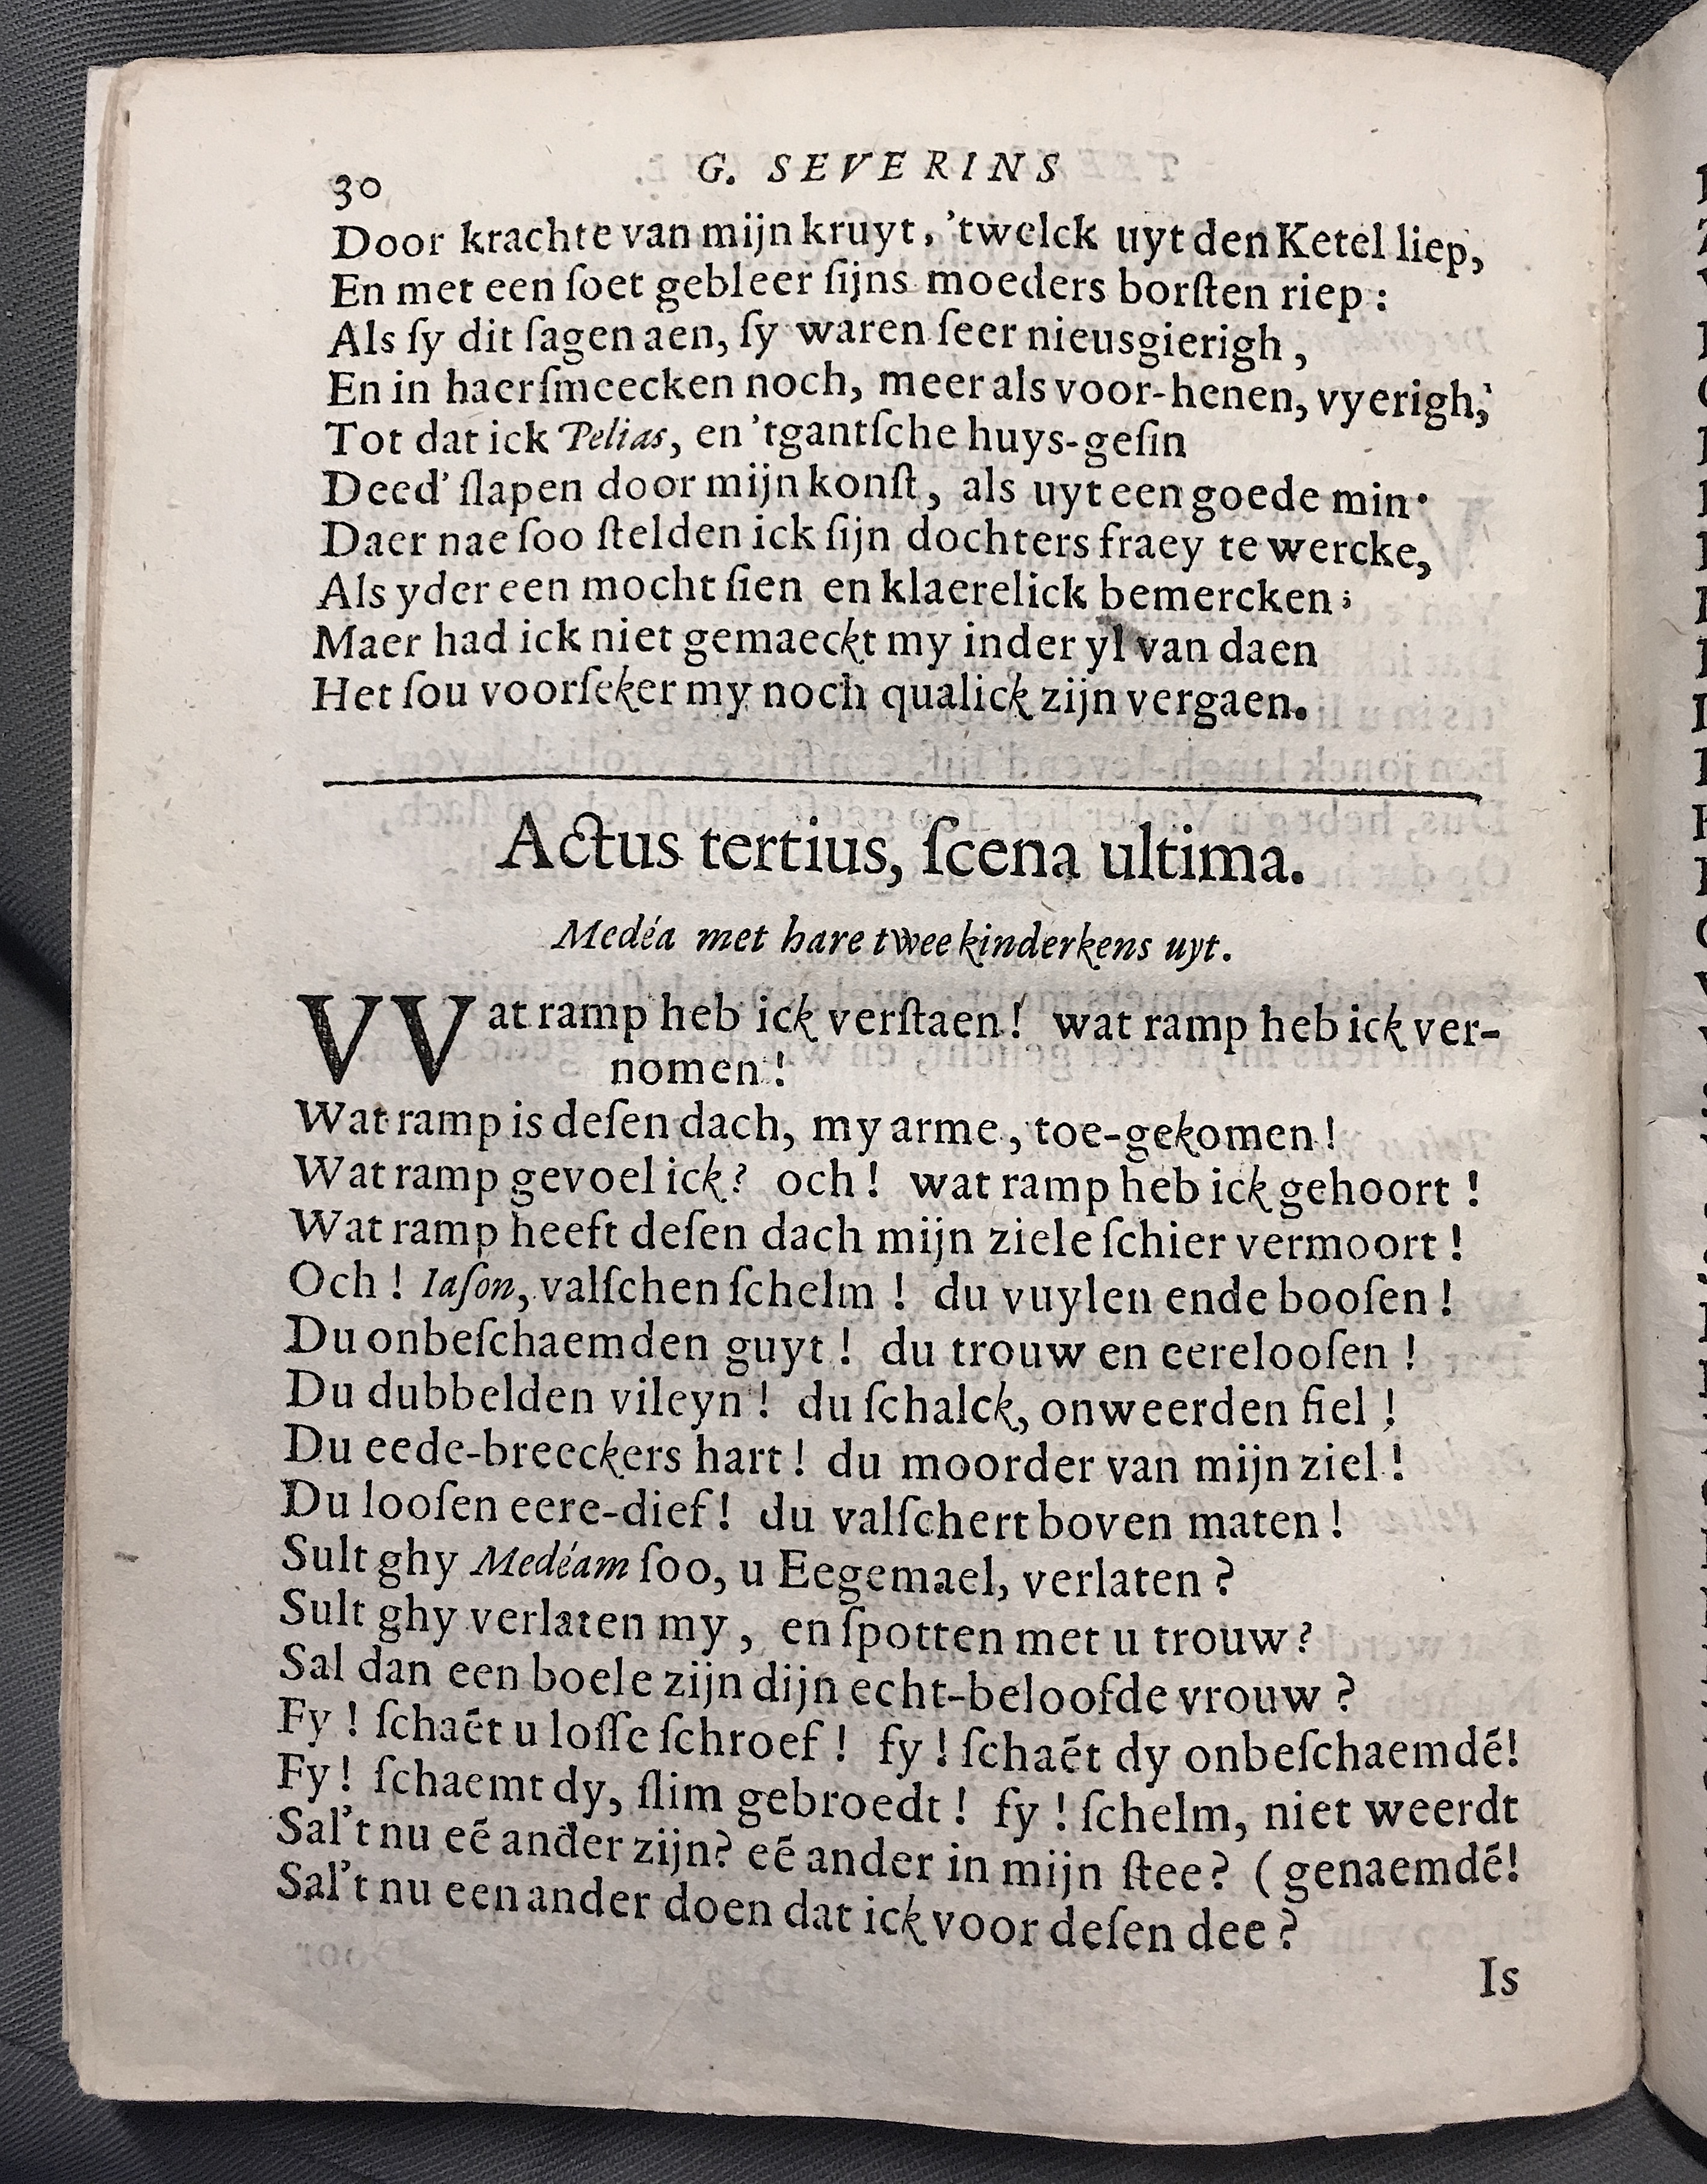 30 G. SEVERINS
Door krachte van mijn kruyt, 'twelck uyt den Ketel liep,
En met een ſoet gebleer ſijns moeders borſten riep:
Als ſy dit ſagen aen, ſy waren ſeer nieusgierigh,
En in haer ſmeecken noch, meer als voor-henen, vyerigh;
Tot dat ick Pelias, en 'tgantſche huys-geſin
Deed' ſlapen door mijn konſt, als uyt een goede min.
Daer nae ſoo ſtelden ick ſijn dochters fraey te wercke,
Als yder een mocht ſien en klaerelick bemercken;
Maer had ick niet gemaeckt my inder yl van daen
Het ſou voorſeker my noch qualick zijn vergaen.
Actus tertius, ſcena ultima.
Medéa met hare twee kinderkens uyt.
VVat ramp heb ick verſtaen! wat ramp heb ick ver-
nomen!
Wat ramp is deſen dach, my arme, toe-gekomen!
Wat ramp gevoel ick? och! wat ramp heb ick gehoort!
Wat ramp heeft deſen dach mijn ziele ſchier vermoort!
Och! Iaſon, valſchen ſchelm! du vuylen ende booſen!
Du onbeſchaemden guyt! du trouw en eerelooſen!
Du dubbelden vileyn! du ſchalck, onweerden fiel!
Du eede-breeckers hart! du moorder van mijn ziel!
Du looſen eere-dief! du valſchert boven maten!
Sult ghy Medéam ſoo, u Eegemael, verlaten?
Sult ghy verlaten my, en ſpotten met u trouw?
Sal dan een boele zijn dijn echt-beloofde vrouw?
Fy! ſchaẽt u loſſe ſchroef! fy! ſchaẽt dy onbeſchaemdẽ!
Fy! ſchaemt dy, ſlim gebroedt! fy! ſchelm, niet weerdt
Sal't nu eẽ ander zijn? eẽ ander in mijn ſtee? (genaemdẽ!
Sal't nu een ander doen dat ick voor deſen dee?
Is